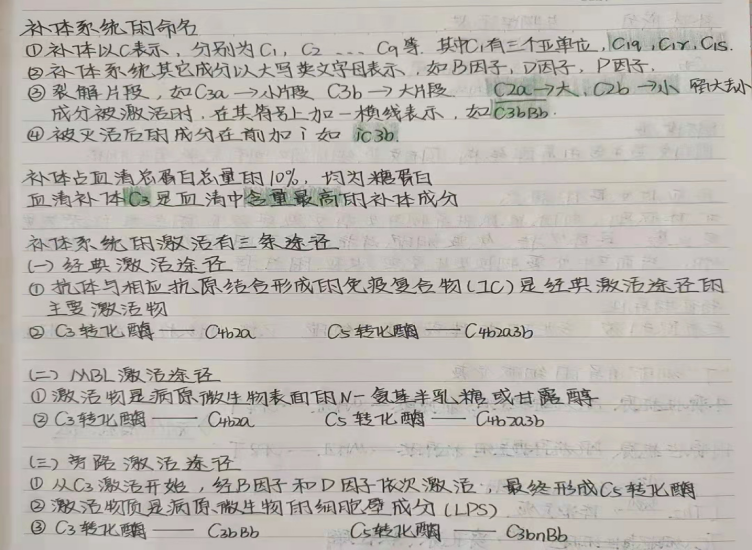 补体系统的命名
①补体以C表示，分别为C1，C2 ... C9等. 其中C1有三个亚单位，C1q，C1r，C1s.
②补体系统其它成分以大写英文字母表示，如B因子，D因子，P因子.
③裂解片段，如C3a→小片段 C3b→大片段 C2a→大，C2b→小
成分被激活时，在其符号上加一横线表示，如C3bBb.
④被灭活后的成分在前加i如 iC3b.
补体占血清总蛋白总量的10%，均为糖蛋白
血清补体C3是血清中含量最高的补体成分
补体系统的激活有三条途径
(一)经典激活途径
①抗体与相应抗原结合形成的免疫复合物(IC)是经典激活途径的
主要激活物
②C3转化酶 —— C4b2a C5转化酶 —— C4b2a3b
(二) MBL激活途径
①激活物是病原微生物表面的N-氨基半乳糖或甘露醇
②C3转化酶 —— C4b2a C5转化酶 —— C4b2a3b
(三)旁路激活途径
①从C3激活开始，经B因子和D因子依次激活，最终形成C5转化酶
②激活物质是病原微生物的细胞壁成分(LPS)
③C3转化酶 —— C3bBb C5转化酶 —— C3bnBb